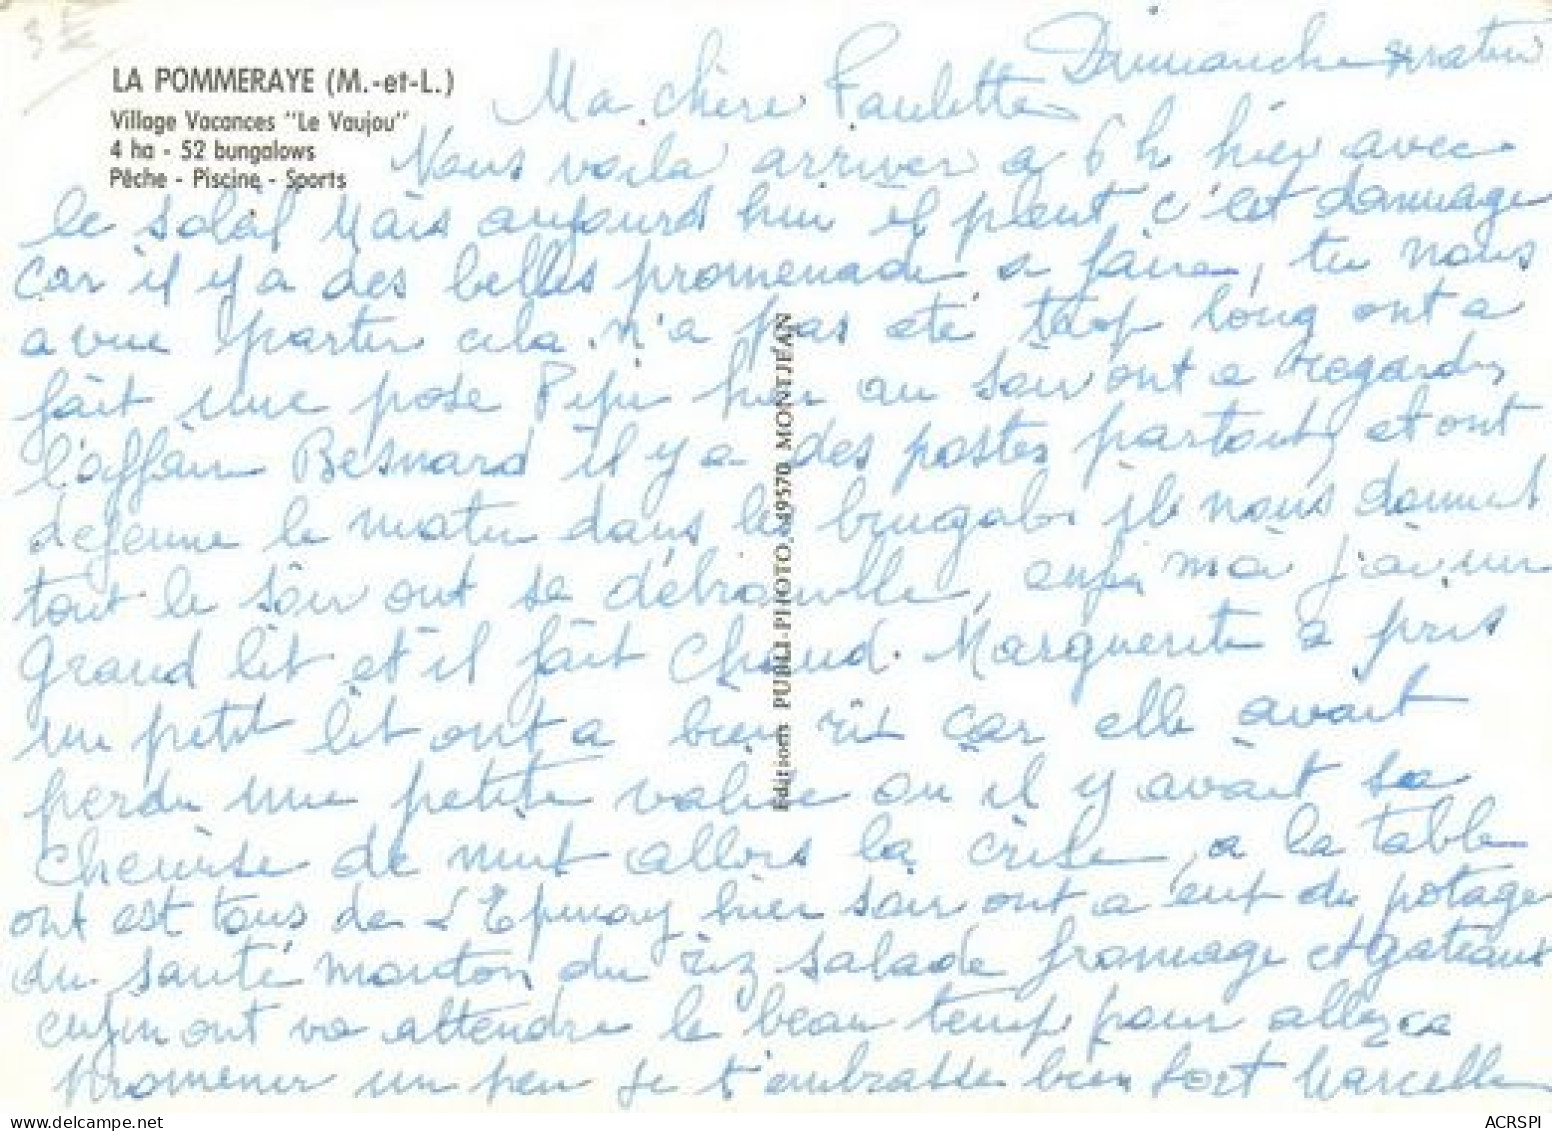 LA POMMERAYE (M.-et-L.)
Village Vacances "Le Vaujou"
4 ha - 52 bungalows
Pêche - Piscine - Sports
Dimanche matin
Ma chère Paulette
Nous voila arriver a 6 h hier avec
le soleil Mais aujourd hui il pleut c'est dammage
car il y a des belles promenade a faire, tu nous
a vue partir cela n'a pas été trop long ont a
fait une pose Pipi hier au soir ont a regarder
l'affair Besnard il y a des postes partout, et ont
dejeune le matin dans les brugalos ils nous donnent
tout le soir ont se débrouille, enfin moi j'ai un
grand lit et il fait chaud. Marguerite a pris
un petit lit ont a bien rit car elle avait
perdu une petite valise ou il y avait sa
chemise de nuit allors la crise, a la table
ont est tous de L'Epinay hier soir ont a eut du potage
du sauté mouton du riz salade fromage et gateaux
enfin ont va attendre le beau temps pour allez ca
promener un peu je t'embrasse bien fort Marcelle
Editions PUBLI-PHOTO, 49570 MONTJEAN
3 €
ACRSPI